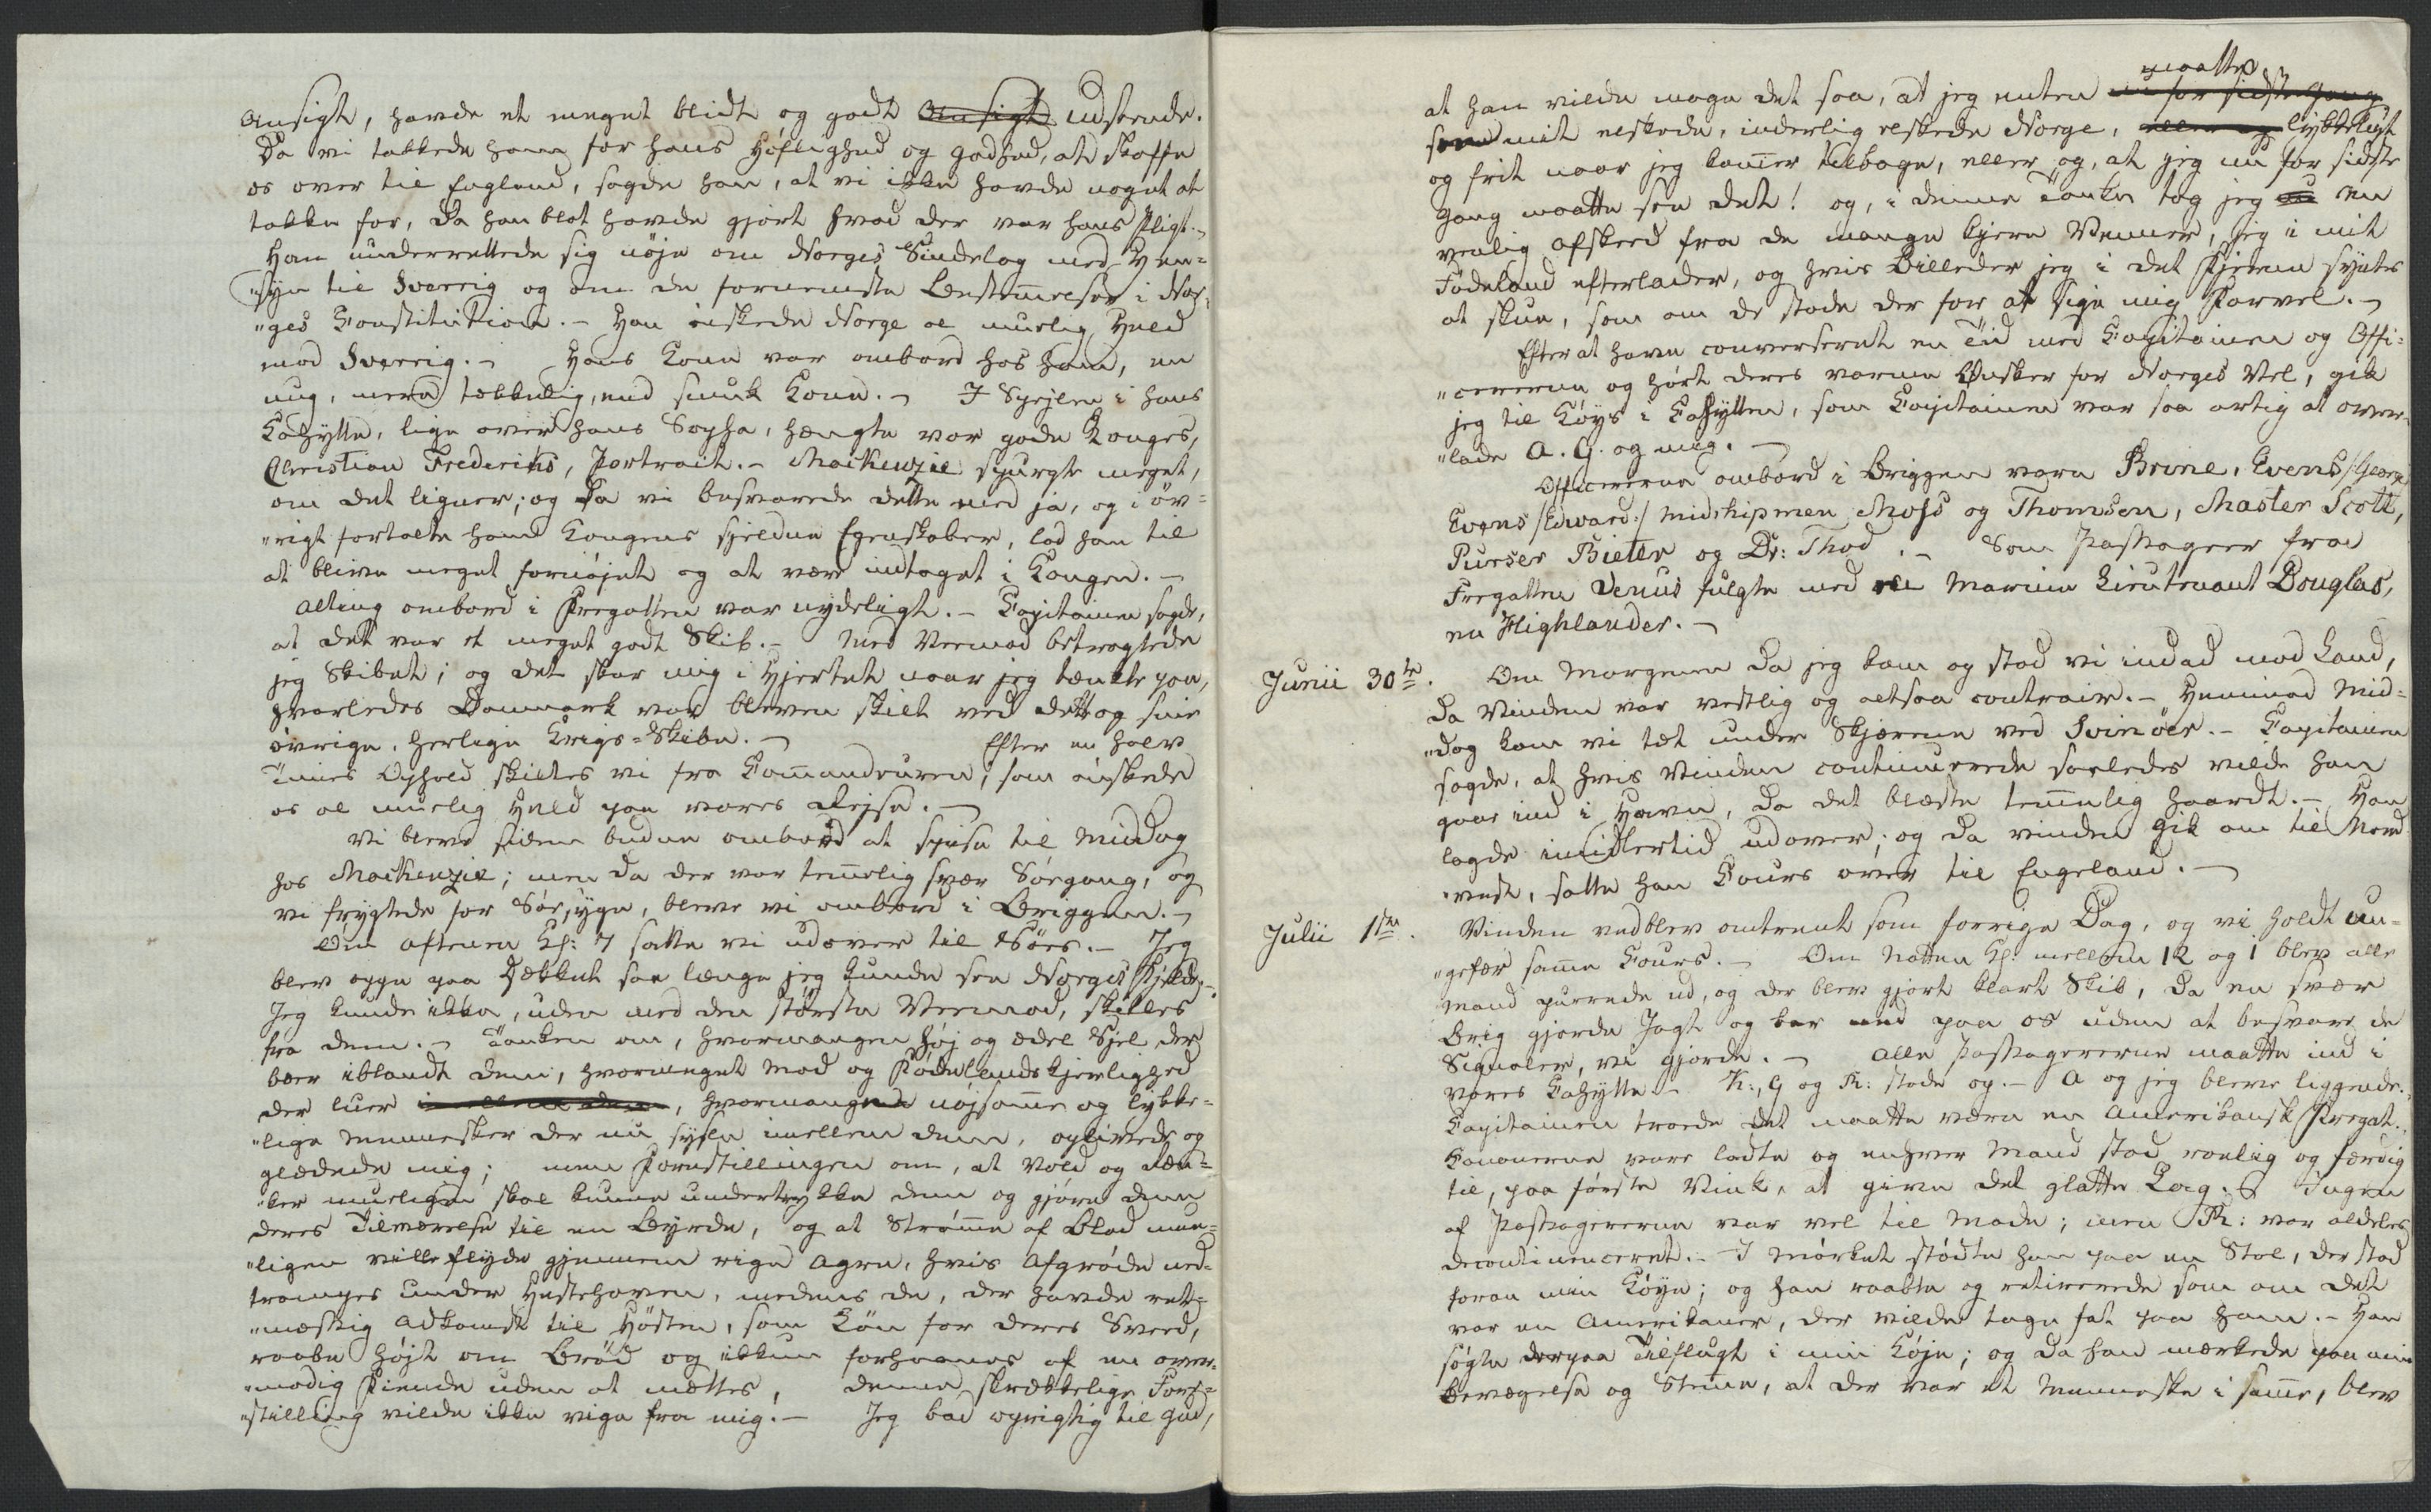 Ansigt, havde et meget blidt og godt Ansigt udseende.
Da vi takkede ham for hans Höflighed og Godhed, at skaffe
os over til England, sagde han, at vi ikke havde noget at
takke for, da han blot havde gjort hvad der var hans Pligt. -
Han underrettede sig nöje om Norges Sindelag med Hen=
"syn til Sverrig og om de fornemste Bestemmelser i Nor=
"ges Constitution. - Han önskede Norge al muelig Held
mod Sverrig. - Hans Kone var ombord hos ham, en
ung, mere tækkelig, end smuk Kone. - I Spejlen i hans
Cahytte, lige over hans Sopha, hængte vor gode Konges,
Christian Frederiks, Portrait. - Mackenzie spurgte meget,
om det ligner; og da vi besvarede dette med ja, og i öv=
"rigt fortalte ham Kongens sjeldne Egenskaber, lod han til
at blive meget fornöjet og at være indtaget i Kongen. -
Alting ombord i Fregatten var nydeligt. - Capitainen sagde,
at det var et meget godt Skib. - Med Veemod betragtede
jeg Skibet; og det skar mig i Hjertet naar jeg tænkte paa,
hvorledes Danmark var bleven skilt ved dette og sine
övrige, herlige Krigs=Skibe. - Efter en halv
Times Ophold skiltes vi fra Commandeuren, som önskede
os al muelig Held paa vores Rejse. -
Vi bleve siden budne ombord at spise til Middag
hos Mackenzie; men da der var temmelig svær Söegang, og
vi frygtede for Söesyge, bleve vi ombord i Briggen. -
Om Aftenen Kl: 7 satte vi udover til Söes. - Jeg
blev oppe paa Dækket saa længe jeg kunde see Norges Fjelde. -
Jeg kunde ikke, uden med den störste Veemod, skilles
fra dem. - Tanken om, hvormangen höj og ædel Sjel der
boer iblandt dem, hvormeget Mod og Födelandskjerlighed
der luer imellem dem, hvormange nöjsomme og lykke=
"lige Mennesker der nu sysle imellem dem, oplivede og
glædede mig; men Forestillingen om, at Vold og Ræn=
"ker mueligen skal kunne undertrykke dem og gjöre dem
deres Tilværelse til en Byrde, og at Strömme af Blod mue=
"ligen ville flyde gjennem rige Agre, hvis Afgröde ned=
trampes under Hestehoven, medens de, der havde ret=
"mæssig Adkomst til Hösten, som Lön for deres Sveed,
raabe höjt om Bröd og ikkun forhaanes af en over=
"modig Fiende uden at mættes, denne skrækkelige Fore=
"stilling vilde ikke vige fra mig! - Jeg bad oprigtig til Gud,
maatte
at han vilde mage det saa, at jeg enten nu for sidste Gang
see mit elskede, inderlig elskede Norge, eller og lykkeligt
og frit naar jeg kommer tilbage, eller og, at jeg nu for sidste
Gang maatte see det! og, i denne Tanke tog jeg en
venlig Afskeed fra de mange kjere Venner, jeg i mit
Födeland efterlader, og hvis Billeder jeg i det Fjerne syntes
at skue, som om de stode der for at sige mig Farvel. -
Efter at have converseret en Tid med Capitainen og Offi=
"cererne og hört deres varme Önsker for Norges Vel, gik
jeg til Köys i Cahytten, som Capitainen var saa artig at over=
"lade A. G. og mig. -
Officererne ombord i Briggen vare Brine, Evens /George
Evens /Edward:/ midshipmen Moss og Thomsen, Master Scott,
Purser Bieter og Dr: Thod. - Som Passageer fra
Fregatten Venus fulgte med en Marine Lieutenant Douglas,
en Highlander. -
Junii 30te. Om Morgenen da jeg kom op stod vi indad mod Land,
da Vinden var vestlig og altsaa contrair. - Henimod Mid=
"dag kom vi tæt under Skjærene ved Svinöer. - Capitainen
sagde, at hvis Vinden continuerede saaledes vilde han
gaae ind i Havn, da det blæste temmelig haardt. - Han
lagde imidlertid udover; og da Vinden gik om til Nord
"vest, satte han Cours over til Engeland. -
Julii 1ste. Vinden vedblev omtrent som forrige Dag, og vi holdt un=
"gefær samme Cours. - Om Natten Kl. mellem 12 og 1 blev alle
Mand purrede ud, og der blev gjort klart Skib, da en svær
Brig gjorde Jagt og bar ned paa os uden at besvare de
Signaler, vi gjorde. - Alle Passagererne maatte ind i
vores Cahytte - K:, G og R: stode op. - A og jeg bleve liggende.
Capitainen troede det maatte være en Amerikansk Fregat.
Kanonerne vare ladte og enhver Mand stod roelig og færdig
til, paa förste Vink, at give det glatte Lag. - Ingen
af Passagererne var vel til Mode; men R: var aldeles
decontinenceret. - I Mörket stödte han paa en Stol, der stod
foran min Köye; og han raabte og retirerede som om det
var en Amerikaner, der vilde tage fat paa ham. - Han
sögte derpaa Tilflugt i min Köje; og da han mærkede paa min
Bevægelse og Stemme, at der var et Menneske i samme, blev